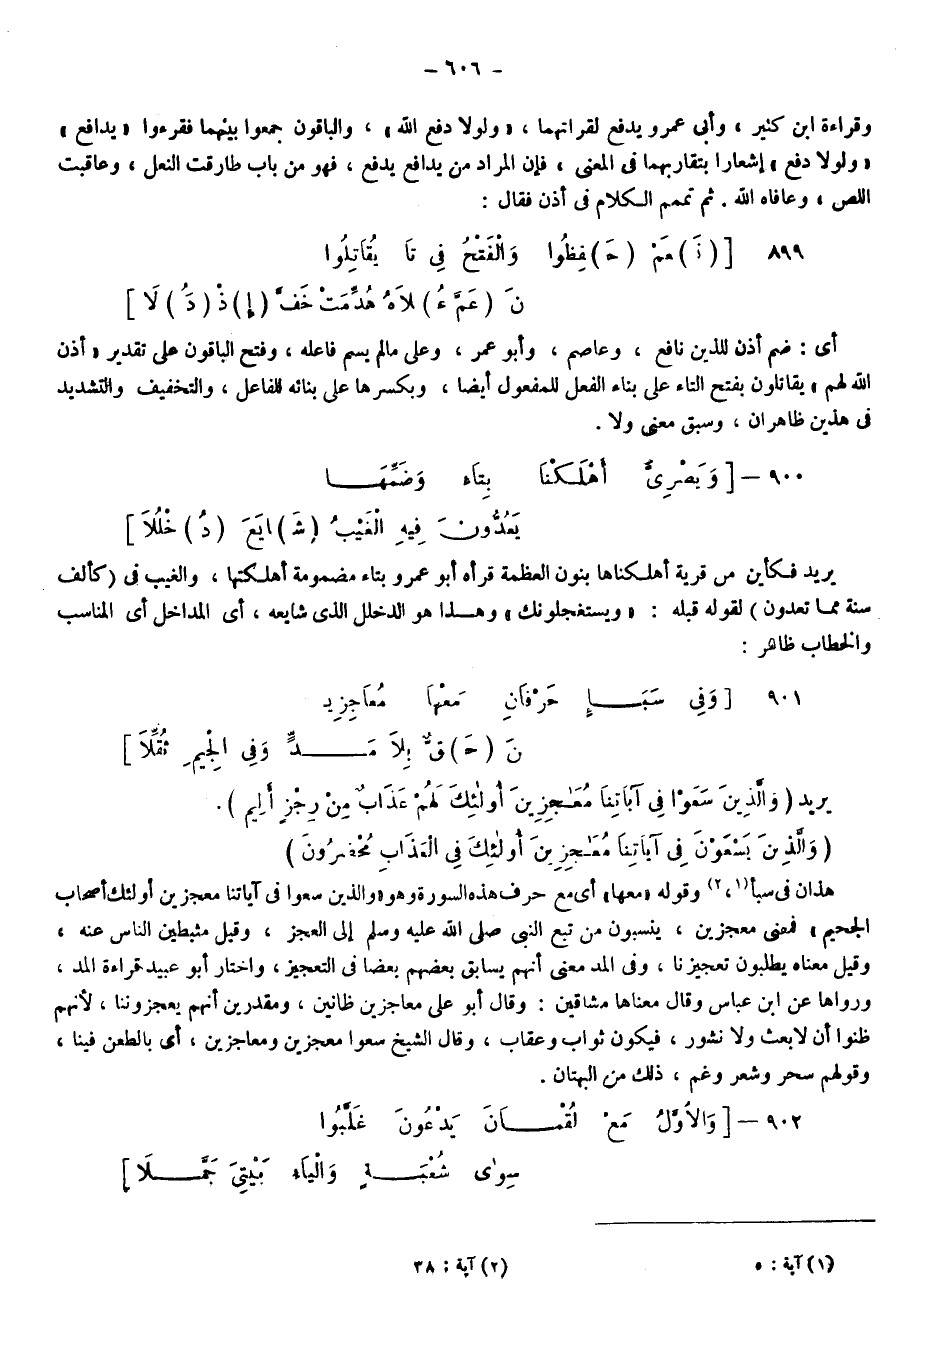 – ٦٠٦ –
وقراءة ابن كثير ، وأبى عمرو يدفع لقراتهما ، «ولولا دفع الله» ، والباقون جمعوا بينهما فقرءوا «يدافع»
«ولولا دفع» إشعارا بتقاربهما فى المعنى ، فإن المراد من يدافع يدفع ، فهو من باب طارقت النعل ، وعاقبت
اللص ، وعافاه الله . ثم تمم الكلام فى أذن فقال :
٨٩٩ [(نَ)عَمْ (حَ)فِظُوا وَالْفَتْحُ فِي تَا يُقَاتِلُوا
نَ (عَمَّ عُ)لاَهُ هُدِّمَتْ خَفَّ (إِ)ذْ (دَ)لَا]
أى : ضم أذن للذين نافع ، وعاصم ، وأبو عمر ، وعلى مالم يسم فاعله ، وفتح الباقون على تقدير «أذن
الله لهم» يقاتلون بفتح التاء على بناء الفعل للمفعول أيضا ، وبكسرها على بنائه للفاعل ، والتخفيف والتشديد
فى هذين ظاهران ، وسبق معنى ولا .
٩٠٠ – [وَبَصْرِىٌّ أَهْلَكْنَا بِتَاء وَضَمِّهَـــا
يَعُدُّونَ فِيهِ الْغَيْبُ (شَ)ايَعَ (دُ)خْلُلاَ]
يريد فكأين من قرية أهلكناها بنون العظمة قرأه أبو عمرو بتاء مضمومة أهلكتها ، والغيب فى (كألف
سنة مما تعدون) لقوله قبله : «ويستعجلونك» وهذا هو الدخلل الذى شايعه ، أى المداخل أى المناسب
والخطاب ظاهر :
٩٠١ [وَفِي سَبَـــإٍ حَرْفَانِ مَعْهَا مُعَاجِزِيـ
نَ (حَ)قٌّ بِلاَ مَـــدٍّ وَفِي الْجِيمِ ثُقِّلَا]
يريد (وَالَّذِينَ سَعَوْا فِي آيَاتِنَا مُعَٰجِزِينَ أُولَٰئِكَ لَهُمْ عَذَابٌ مِنْ رِجْزٍ أَلِيم ) .
(وَالَّذِينَ يَسْعَوْنَ فِي آيَاتِنَا مُعَٰجِزِينَ أُولَٰئِكَ فِي الْعَذَابِ مُحْضَرُونَ)
هذان فى سبأ(١،٢) وقوله «معها» أى مع حرف هذه السورة وهو «والذين سعوا فى آياتنا معجزين أولئك أصحاب
الجحيم» فمعنى معجزين ، ينسبون من تبع النبى صلى الله عليه وسلم إلى العجز ، وقيل مثبطين الناس عنه ،
وقيل معناه يطلبون تعجيزنا ، وفى المد معنى أنهم يسابق بعضهم بعضا فى التعجيز ، واختار أبو عبيد قراءة المد ،
ورواها عن ابن عباس وقال معناها مشاقين : وقال أبو على معاجزين ظانين ، ومقدرين أنهم يعجزوننا ، لأنهم
ظنوا أن لابعث ولا نشور ، فيكون ثواب وعقاب ، وقال الشيخ سعوا معجزين ومعاجزين ، أى بالطعن فينا ،
وقولهم سحر وشعر وغم ، ذلك من البهتان .
٩٠٢ – [وَالأَوَّلُ مَعْ لُقْمَـــانَ يَدْعُونَ غَلَّبُوا
سِوٰى شُعْبَـــةٍ وَالْيَاء بَيْتِيَ جَمَّـــلَا]
(١) آية : ٥
(٢) آية : ٣٨